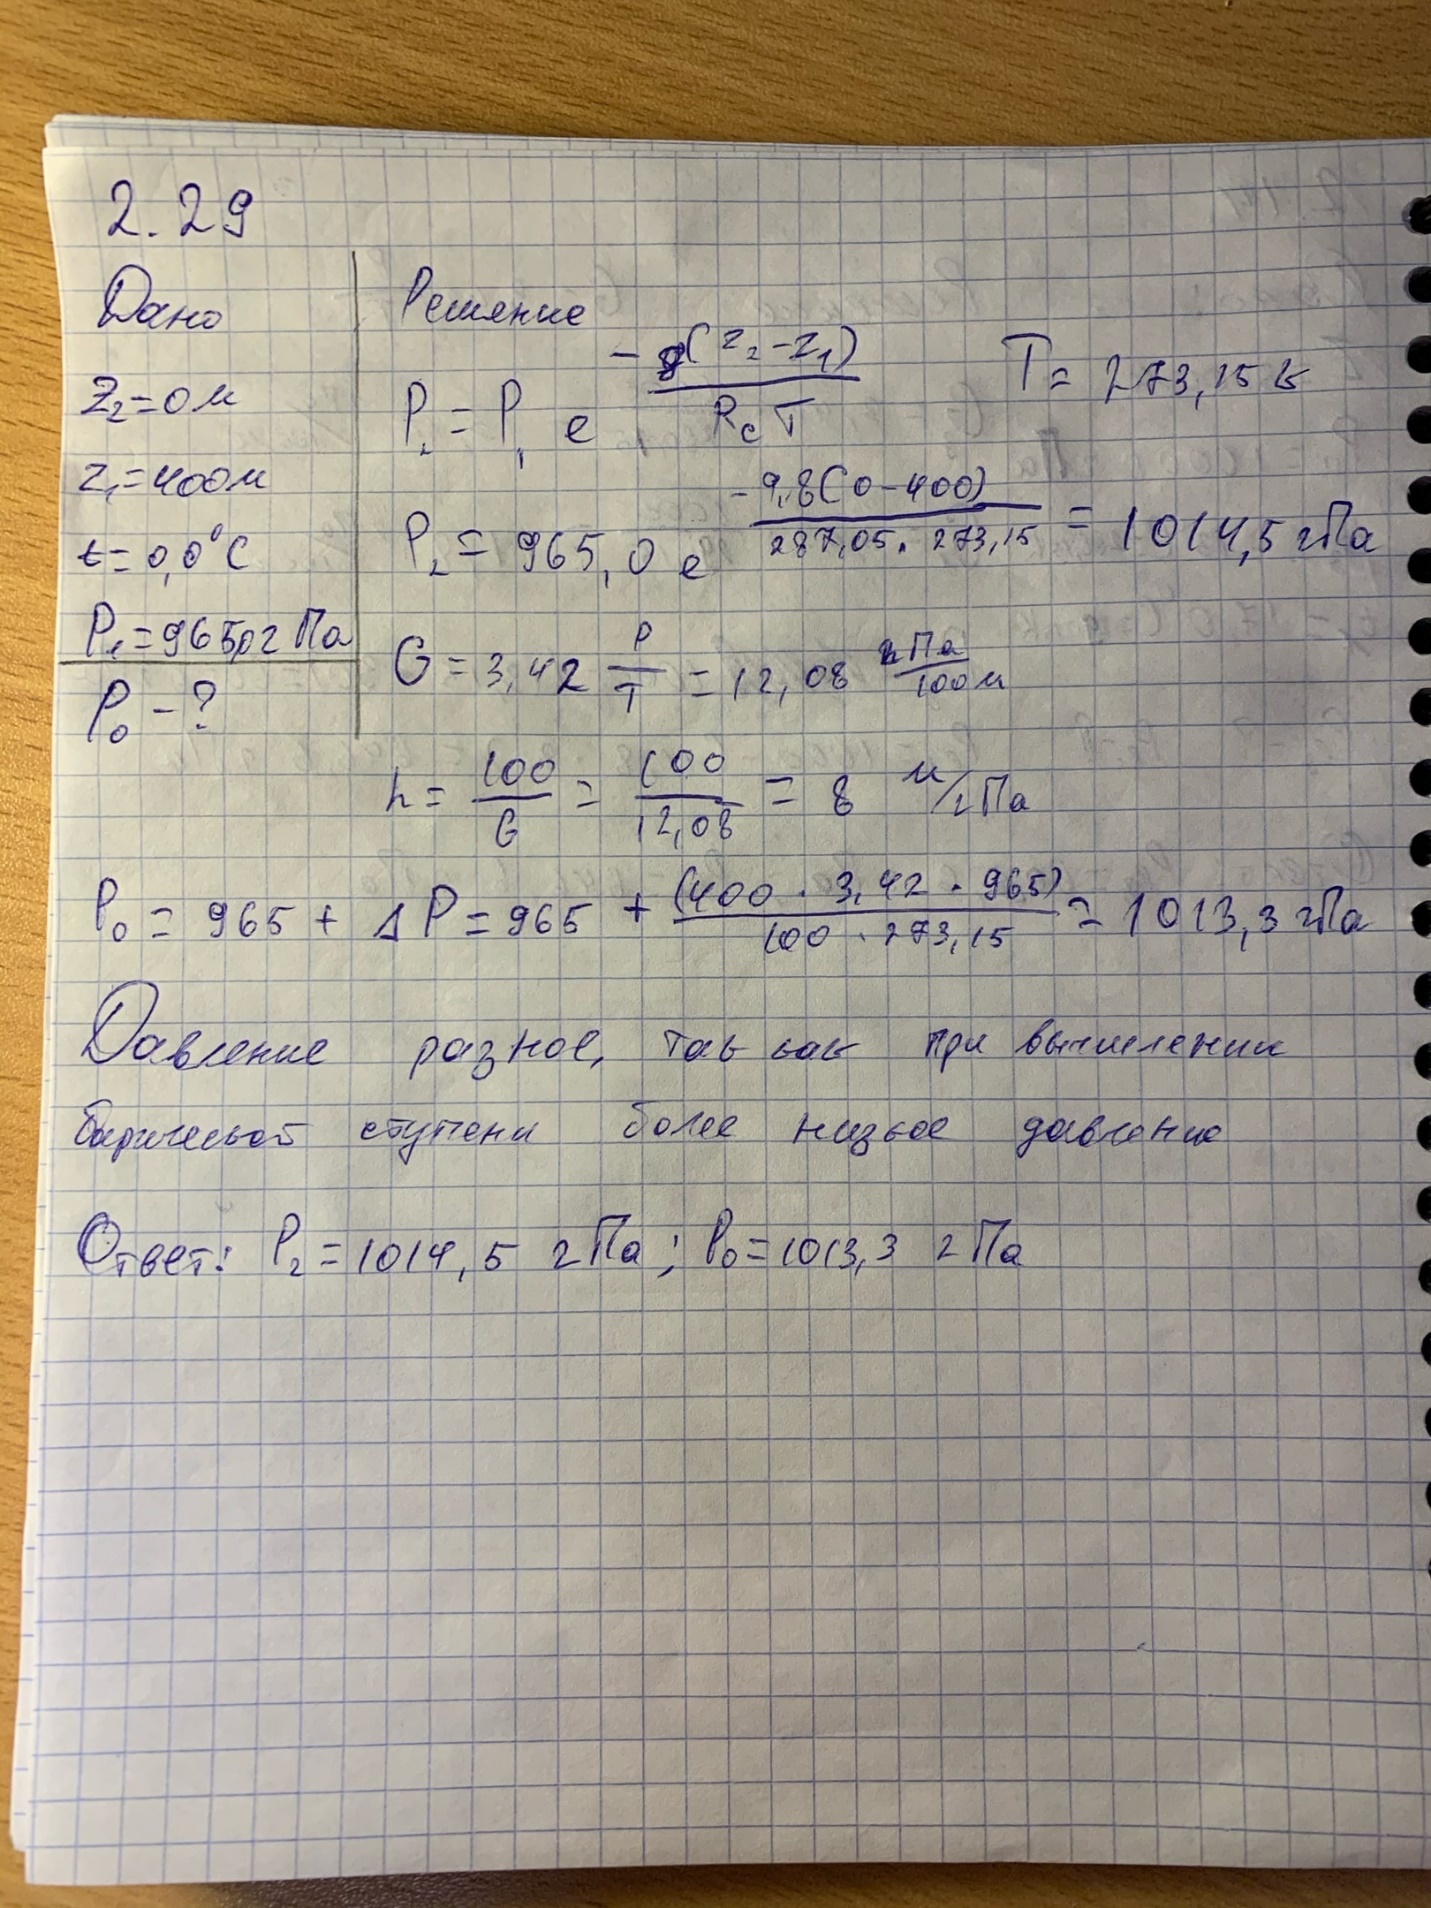 2.29
Дано
Z₂=0м
Z₁=400м
t=0,0°C
P₁=965,0гПа
P₀-?
Решение
P₂ = P₁ e^(-g(Z₂-Z₁)/(RcT)) T=273,15к
P₂ = 965,0 e^(-9,8(0-400)/(287,05·273,15)) = 1014,5 гПа
G = 3,42 P/T = 12,08 гПа/100м
h = 100/G = 100/12,08 = 8 м/гПа
P₀ = 965 + ΔP = 965 + (400·3,42·965)/(100·273,15) = 1013,3 гПа
Давление разное, так как при вычислении
барической ступени более низкое давление
Ответ: P₂=1014,5 гПа; P₀=1013,3 гПа